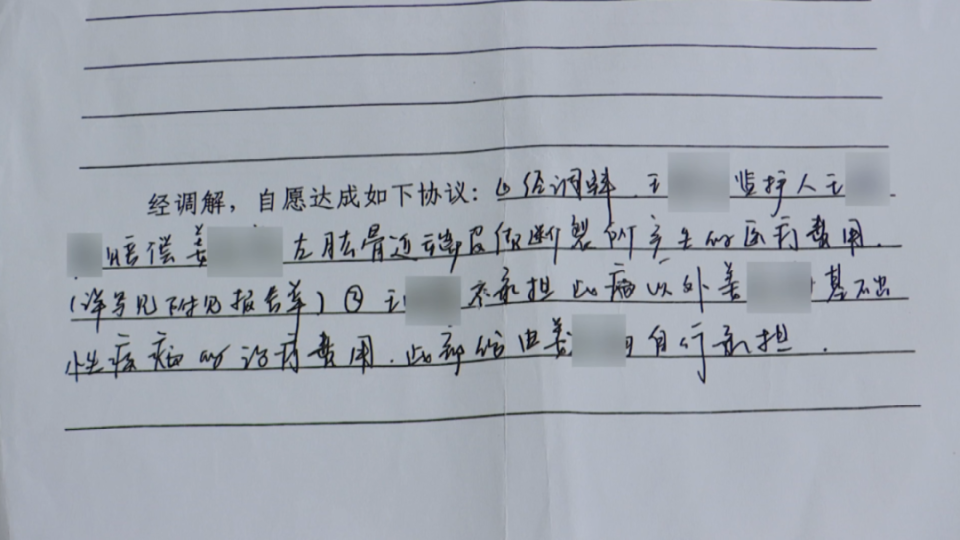 经调解，自愿达成如下协议：①经调解.王 监护人王
赔偿姜 左肱骨近端皮质断裂所产生的医药费用.
(详写见附见报告单)② 王 不承担此病以外姜 基础
性疾病的治疗费用.此部份由姜 自行承担.